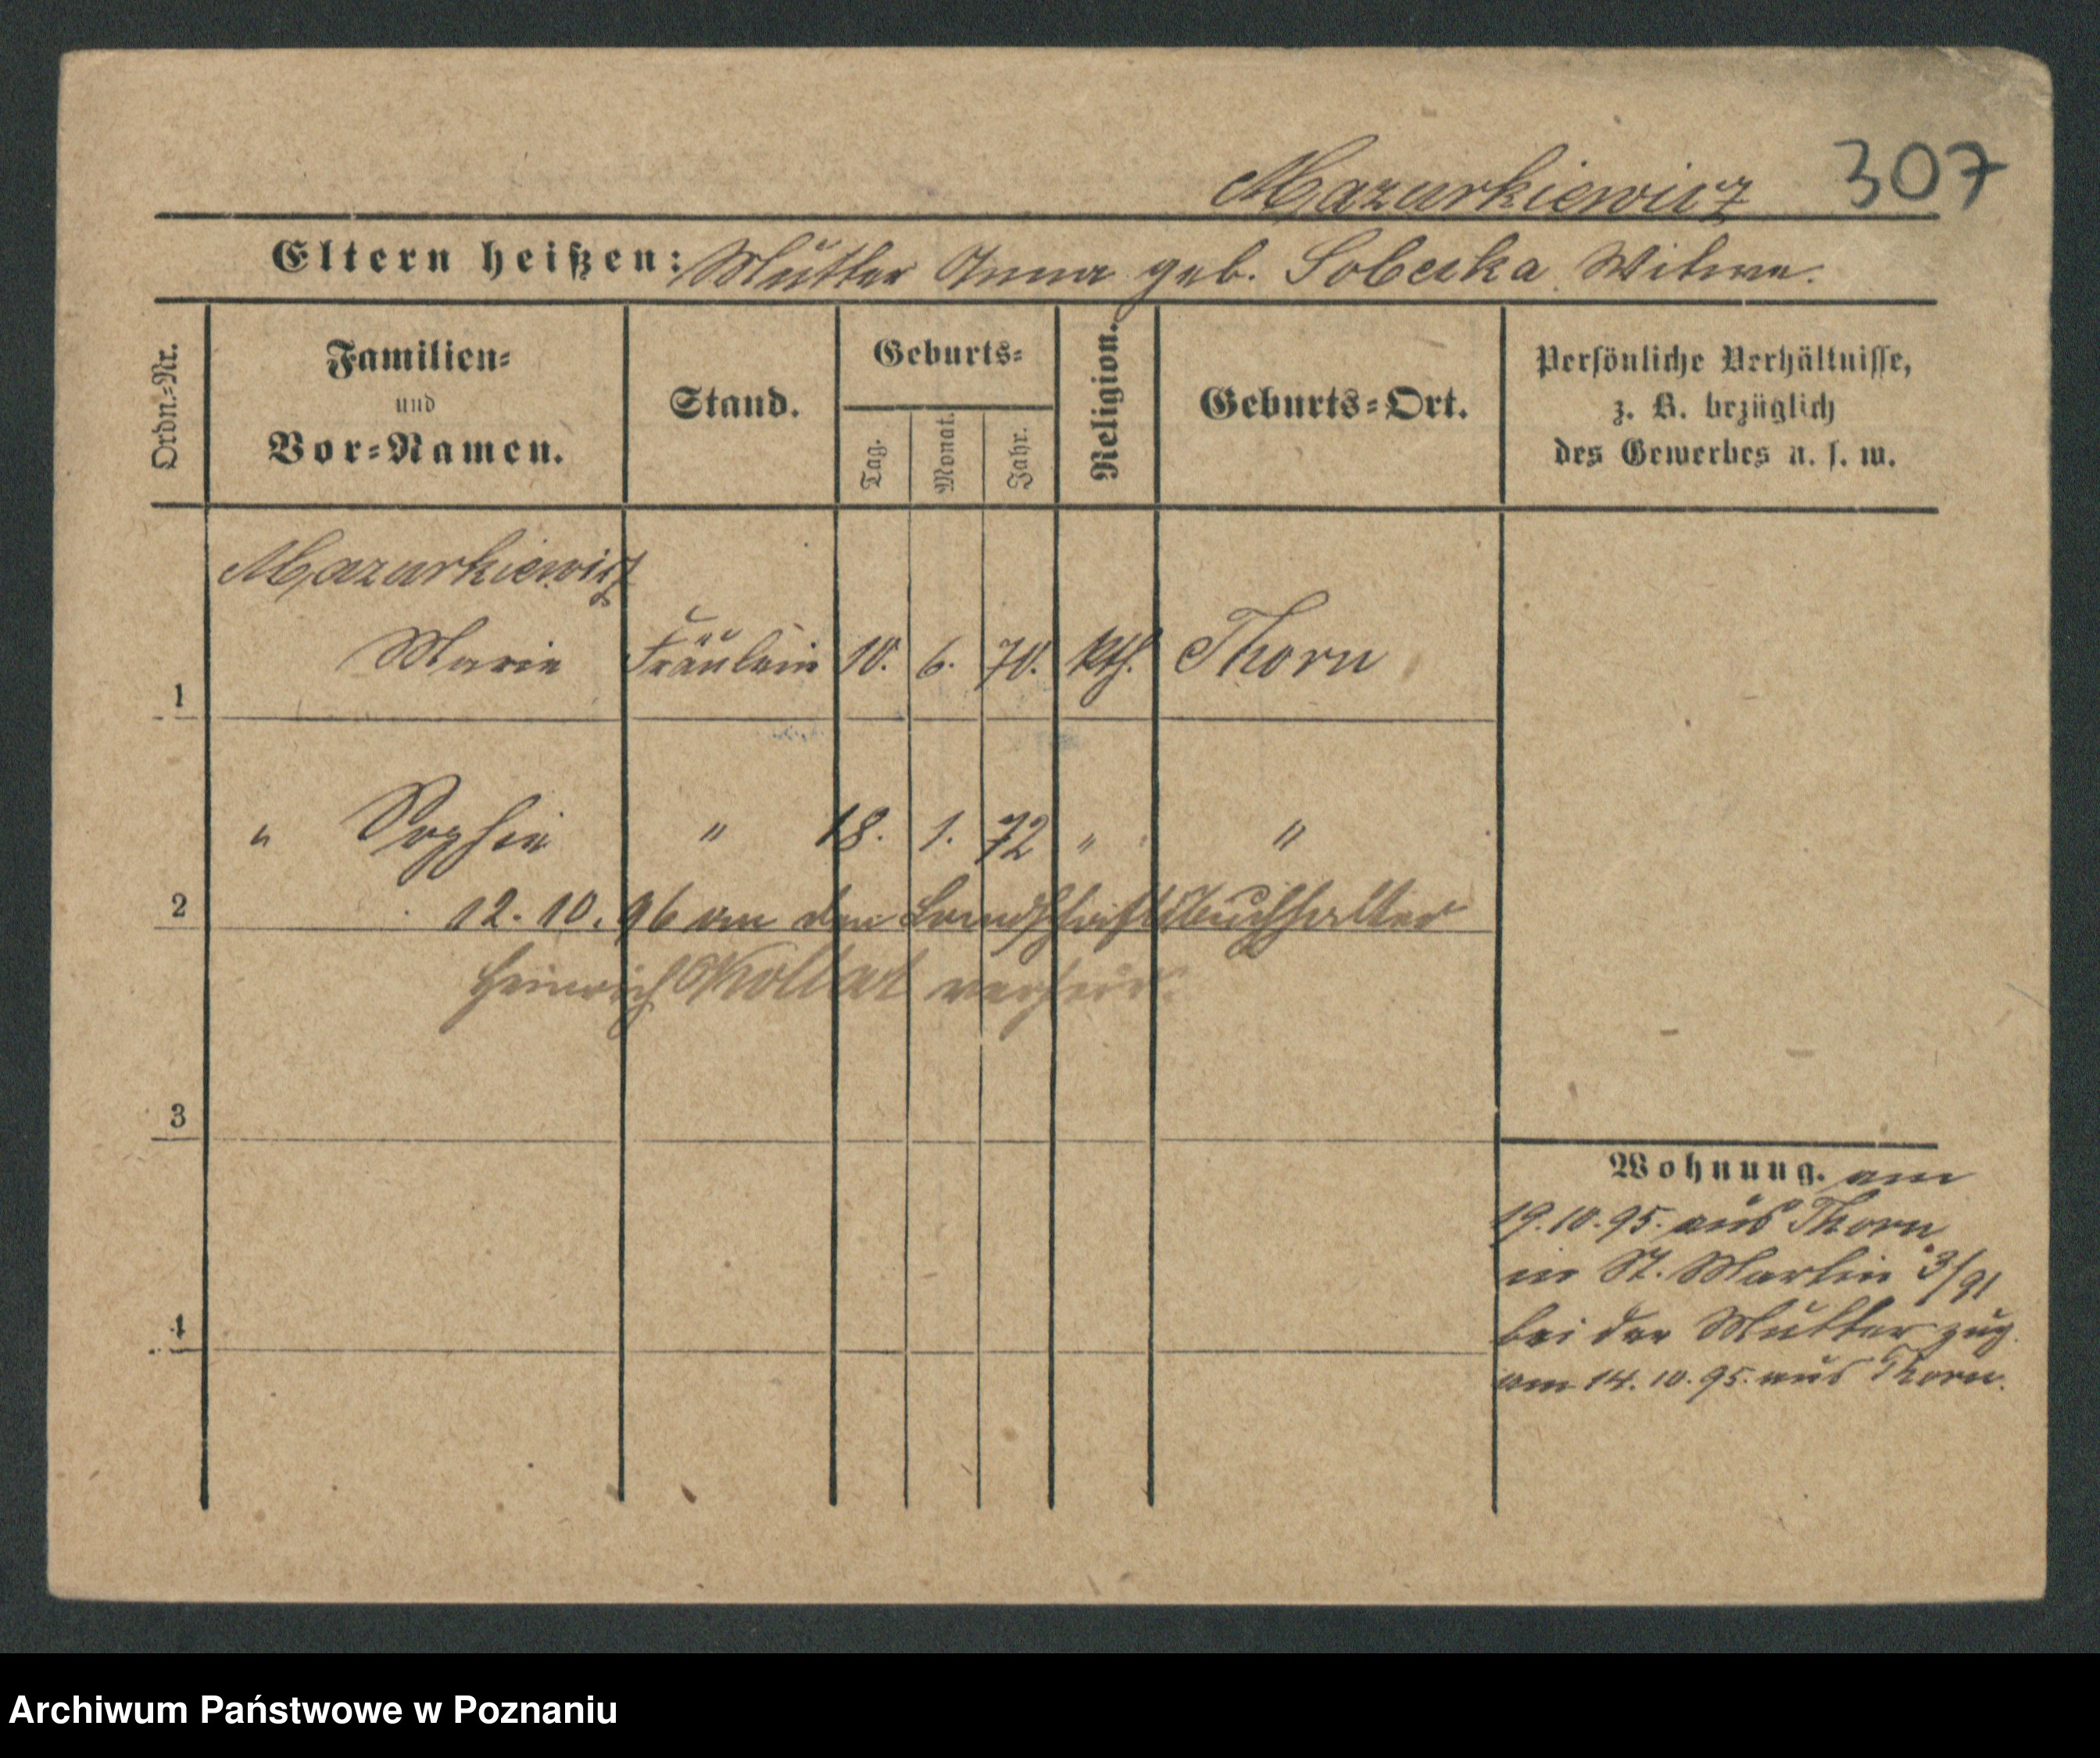 Mazurkiewicz 307
Eltern heißen: Mutter Anna geb. Sobeska Witwe.
Ordn.=Nr.
Familien=
und
Vor=Namen.
Stand.
Geburts=
Tag.
Monat.
Jahr.
Religion.
Geburts=Ort.
Persönliche Verhältnisse,
z. B. bezüglich
des Gewerbes u. s. w.
Mazurkiewicz
1 Marie Fräulein 10. 6. 70. kth. Thorn
" Sophie " 18. 1. 72 " "
2 12. 10. 96 an den Landschaftsbuchhalter
Heinrich verheir.
3
4
Wohnung. am
19. 10. 95. aus Thorn
in St. Martin 3/91
bei der Mutter zug.
am 14. 10. 95. aus Thorn.
Archiwum Państwowe w Poznaniu